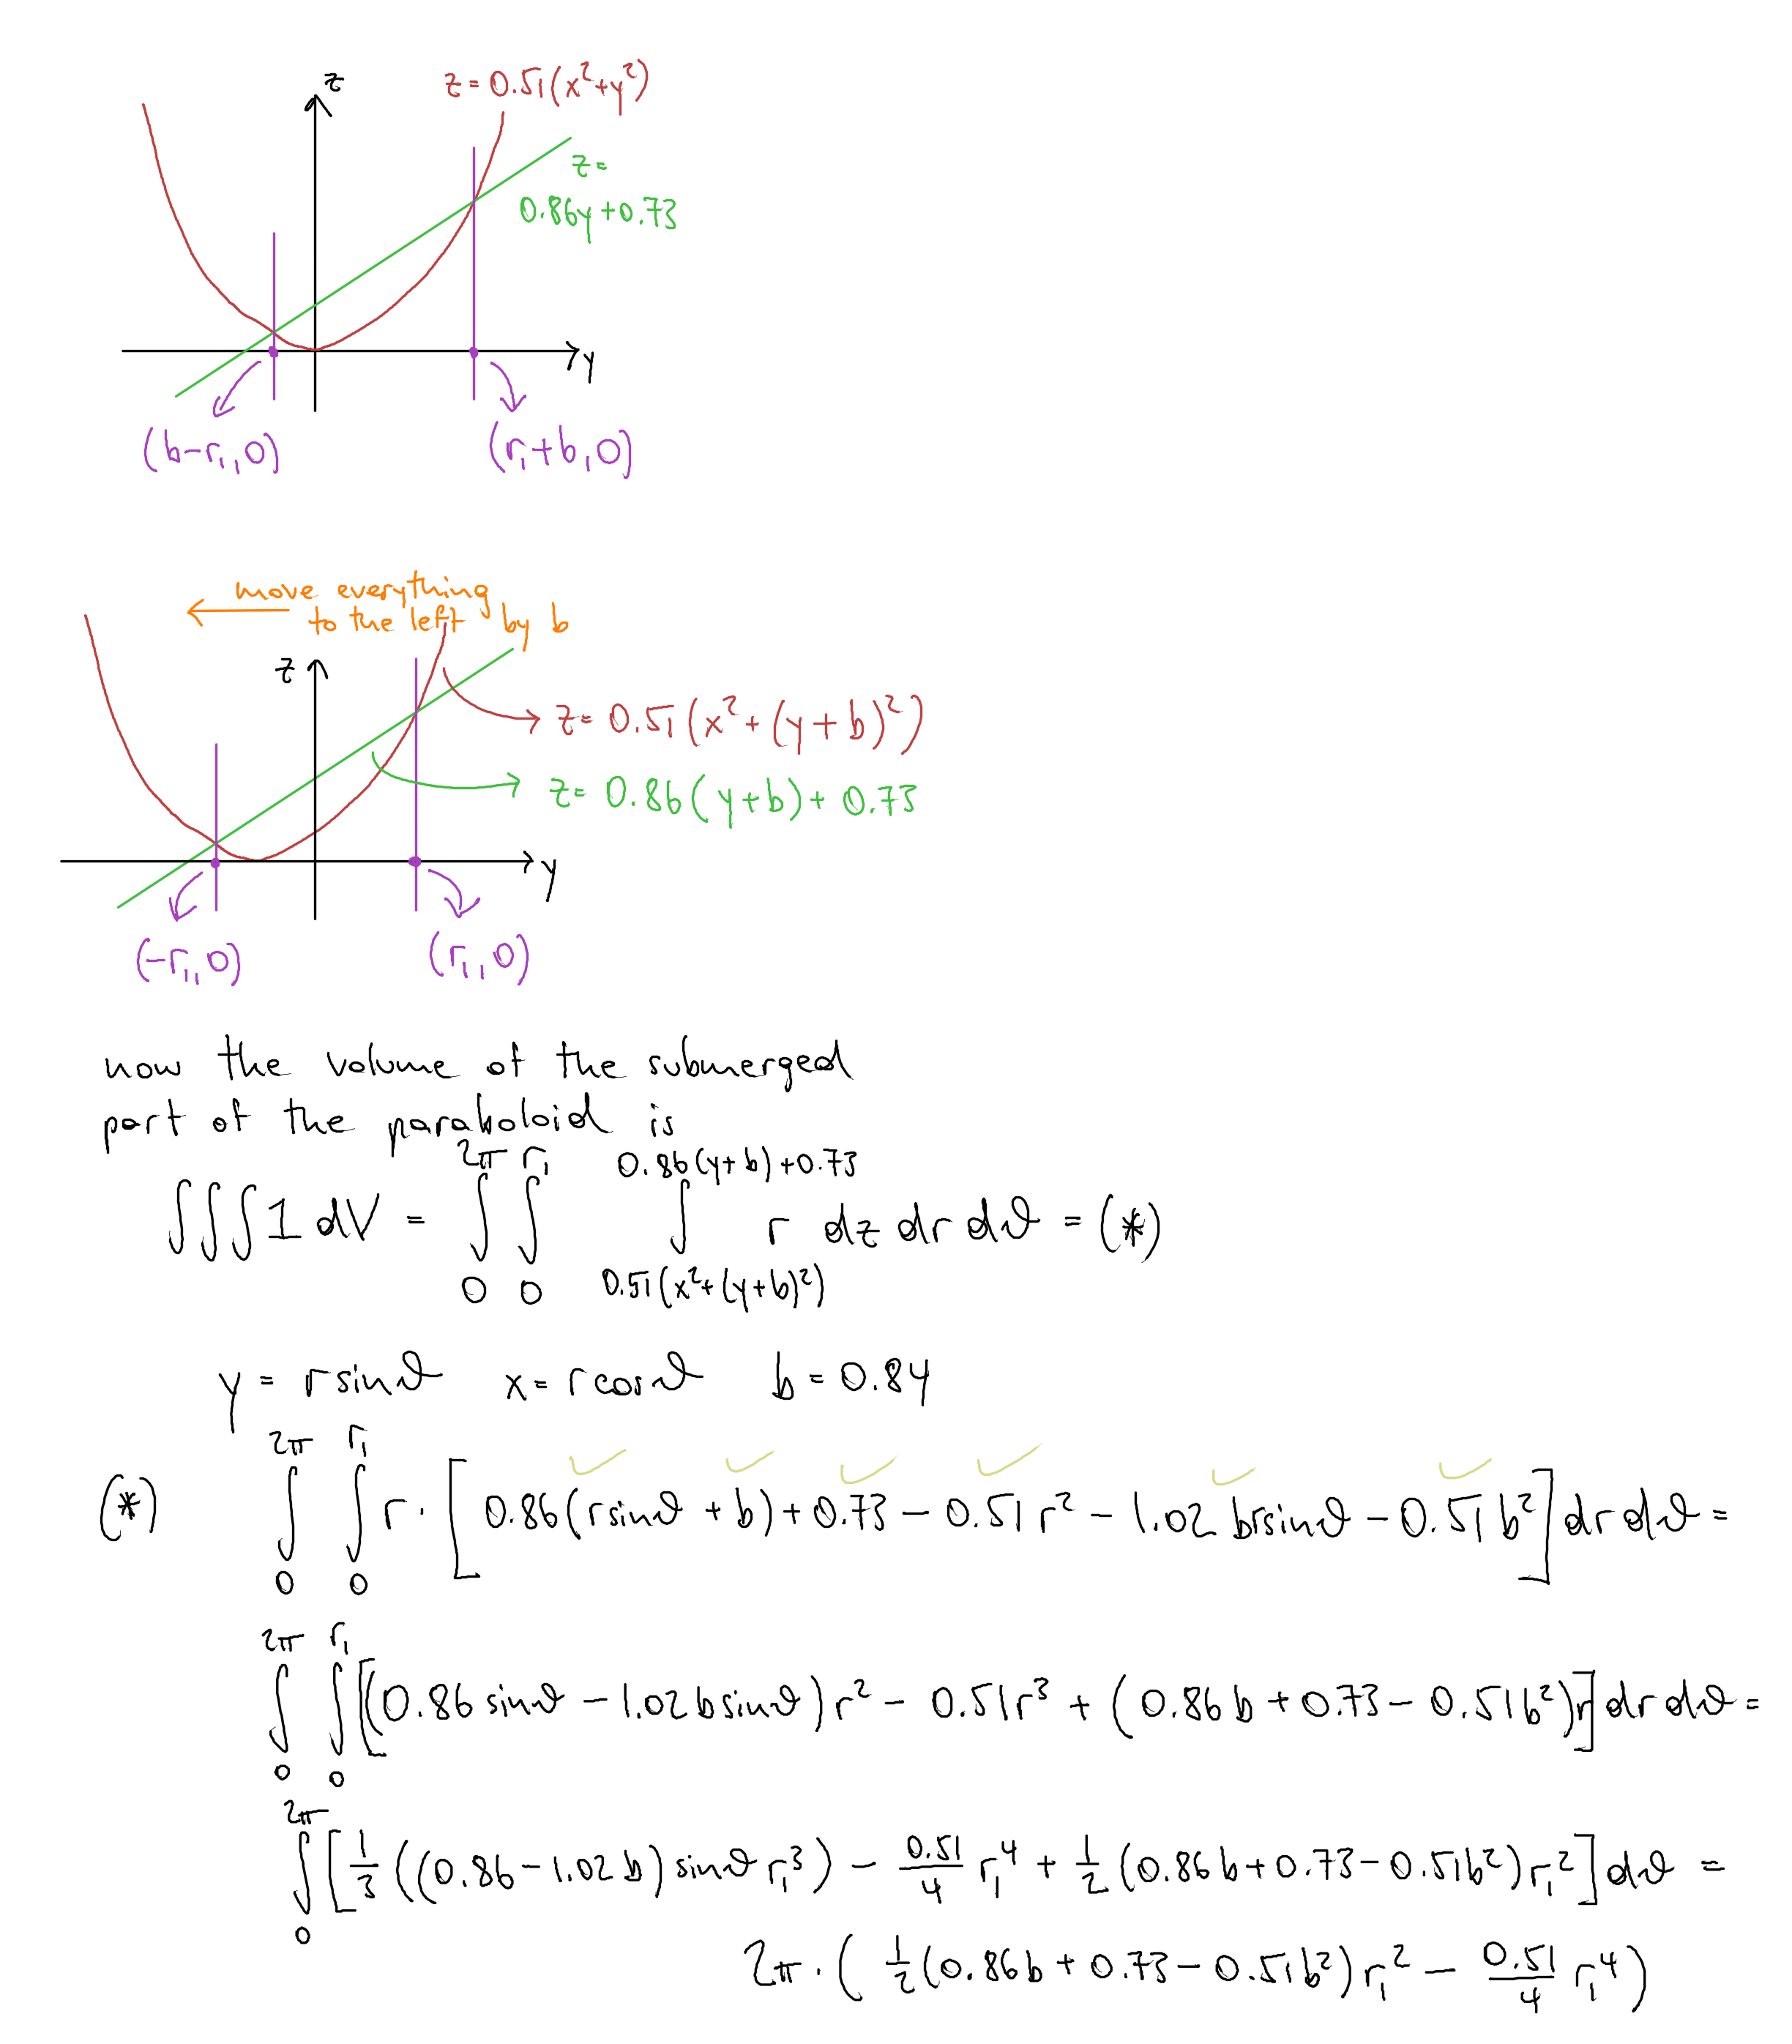 z
z = 0.51(x²+y²)
z =
0.86y+0.73
y
(b−r₁,0)
(r₁+b,0)
move everything
to the left by b
z
z = 0.51(x²+(y+b)²)
z = 0.86(y+b)+0.73
y
(−r₁,0)
(r₁,0)
now the volume of the submerged
part of the paraboloid is
∭ 1 dV = ∫₀^{2π} ∫₀^{r₁} ∫_{0.51(x²+(y+b)²)}^{0.86(y+b)+0.73} r dz dr dϑ = (*)
y = r sinϑ x = r cosϑ b = 0.84
(*) ∫₀^{2π} ∫₀^{r₁} r · [0.86(r sinϑ + b) + 0.73 − 0.51r² − 1.02 br sinϑ − 0.51b²] dr dϑ =
∫₀^{2π} ∫₀^{r₁} [(0.86 sinϑ − 1.02b sinϑ)r² − 0.51r³ + (0.86b + 0.73 − 0.51b²)r] dr dϑ =
∫₀^{2π} [1/3((0.86−1.02b) sinϑ r₁³) − 0.51/4 r₁⁴ + 1/2(0.86b+0.73−0.51b²)r₁²] dϑ =
2π · (1/2(0.86b + 0.73 − 0.51b²)r₁² − 0.51/4 r₁⁴)